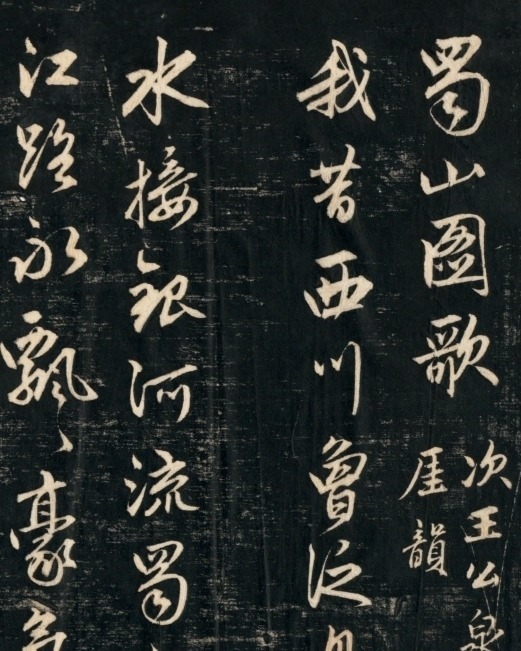 蜀山圖歌
次王公泉
厓韻
我昔西川曾泛
水接銀河流蜀
江路永飄〻豪